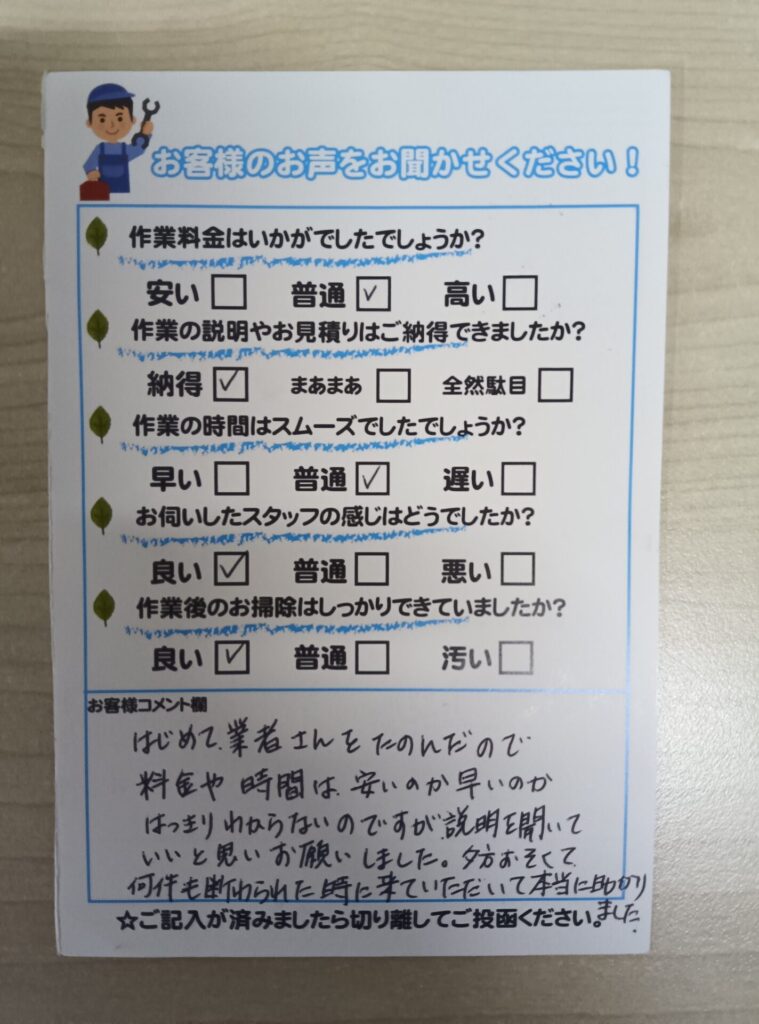 お客様のお声をお聞かせください！
作業料金はいかがでしたでしょうか？
安い □ 普通 ☑ 高い □
作業の説明やお見積りはご納得できましたか？
納得 ☑ まあまあ □ 全然駄目 □
作業の時間はスムーズでしたでしょうか？
早い □ 普通 ☑ 遅い □
お伺いしたスタッフの感じはどうでしたか？
良い ☑ 普通 □ 悪い □
作業後のお掃除はしっかりできていましたか？
良い ☑ 普通 □ 汚い □
お客様コメント欄
はじめて、業者さんをたのんだので
料金や時間は、安いのか早いのか
はっきりわからないのですが説明を聞いて
いいと思いお願いしました。夕方おそくて
何件も断わられた時に来ていただいて本当に助かり
ました。
☆ご記入が済みましたら切り離してご投函ください。